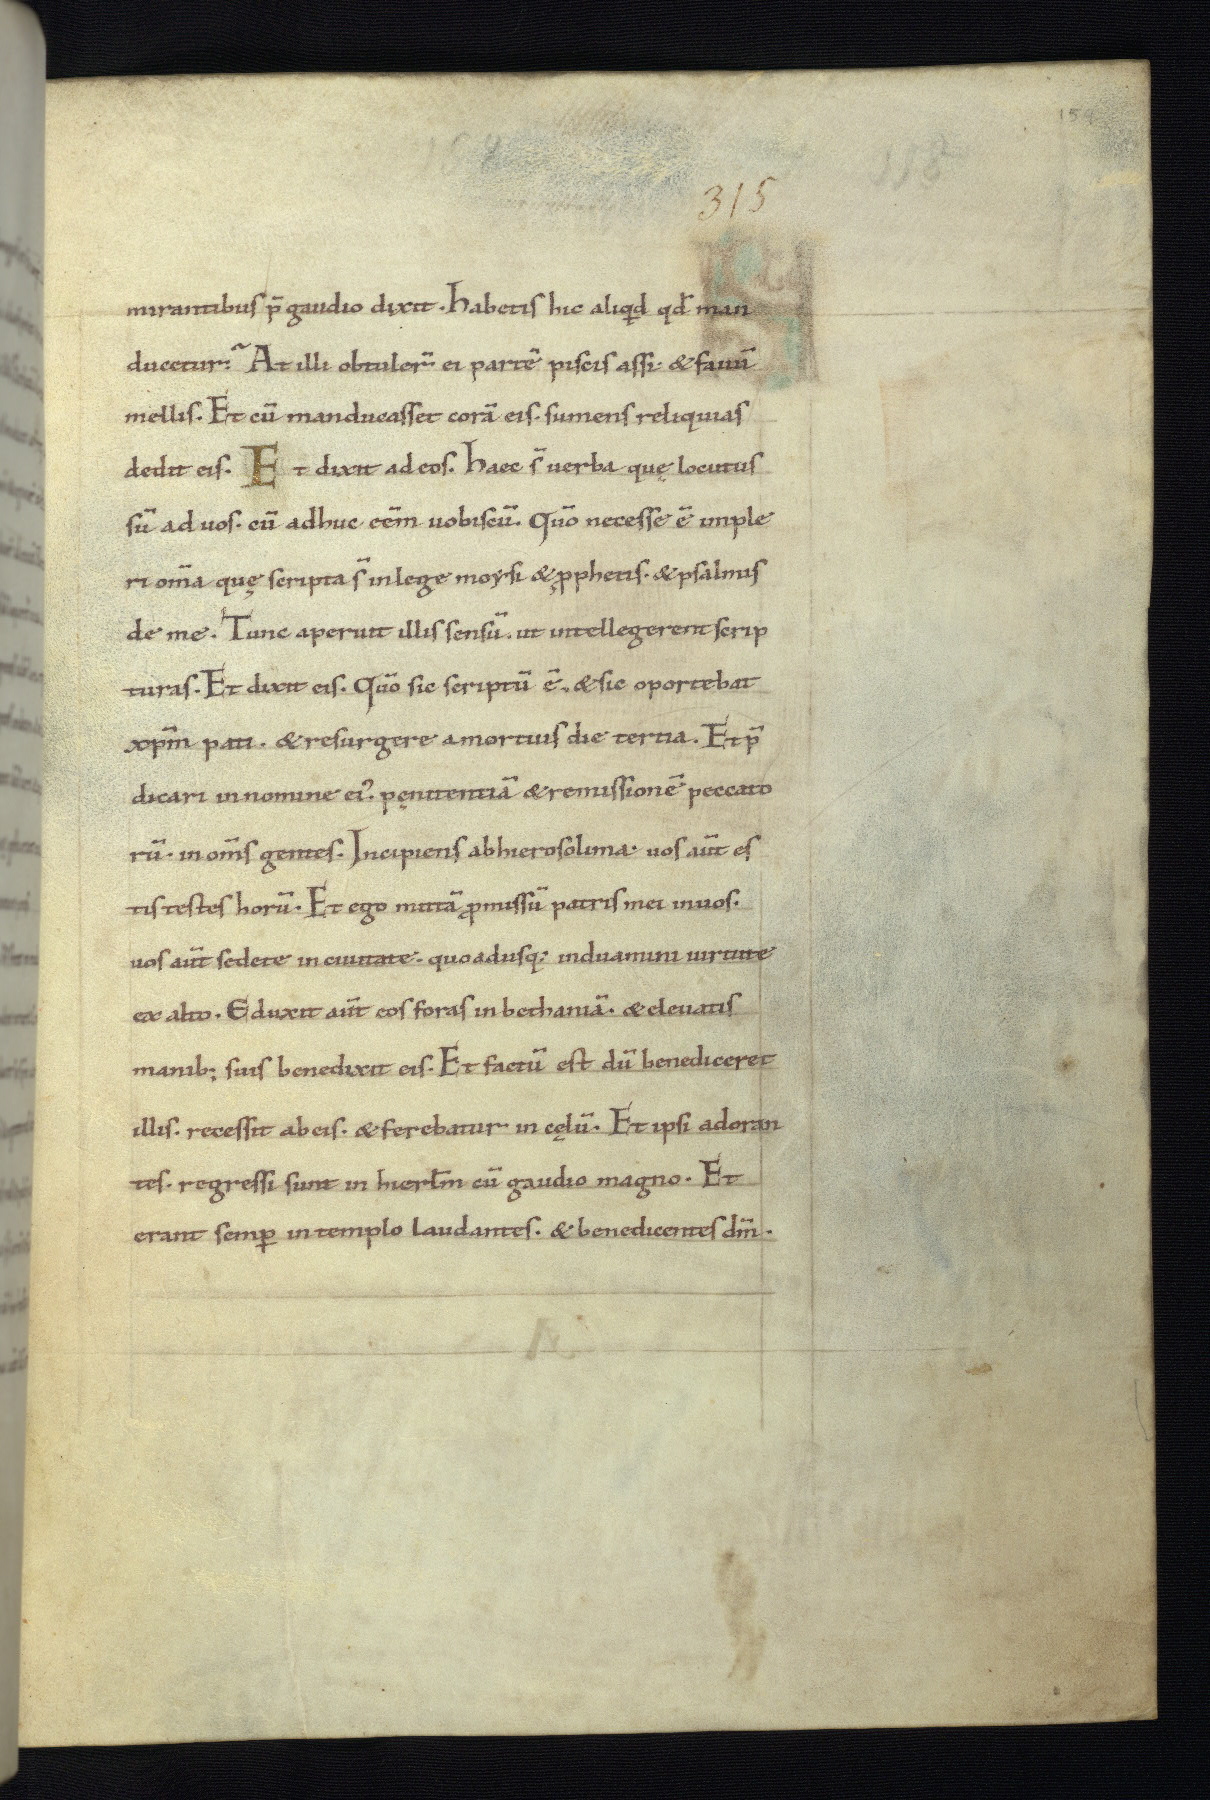 315
mirantibus p̄ gaudio dixit. habetis hic aliq̄d qd̄ man
ducetur? At illi obtuler̄ ei partē piscis assi. & fauū
mellis. Et cū manducasset corā eis. sumens reliquias
dedit eis. Et dixit ad eos. haec s̄ uerba quę locutus
sū ad uos. cū adhuc eēm uobiscū. Qūo necesse ē imple
ri om̄a quę scripta s̄ in lege moysi & ꝓphetis. & psalmis
de me. Tunc aperuit illis sensū. ut intellegerent scrip
turas. Et dixit eis. Qūo sic scriptū ē. & sic oportebat
xp̄m pati. & resurgere a mortuis die tertia. Et p̄
dicari in nomine ei᾽. pęnitentiā & remissionē peccato
rū. in om̄s gentes. Incipiens ab hierosolima. uos aūt es
tis testes horū. Et ego mittā ꝓmissū patris mei in uos.
uos aūt sedete in ciuitate. quo adusq; induamini uirtute
ex alto. Eduxit aūt eos foras in bethaniā. & eleuatis
manib; suis benedixit eis. Et factū est dū benediceret
illis. recessit ab eis. & ferebatur in cęlū. Et ipsi adoran
tes. regressi sunt in hierlm̄ cū gaudio magno. Et
erant semꝑ in templo laudantes. & benedicentes dm̄.